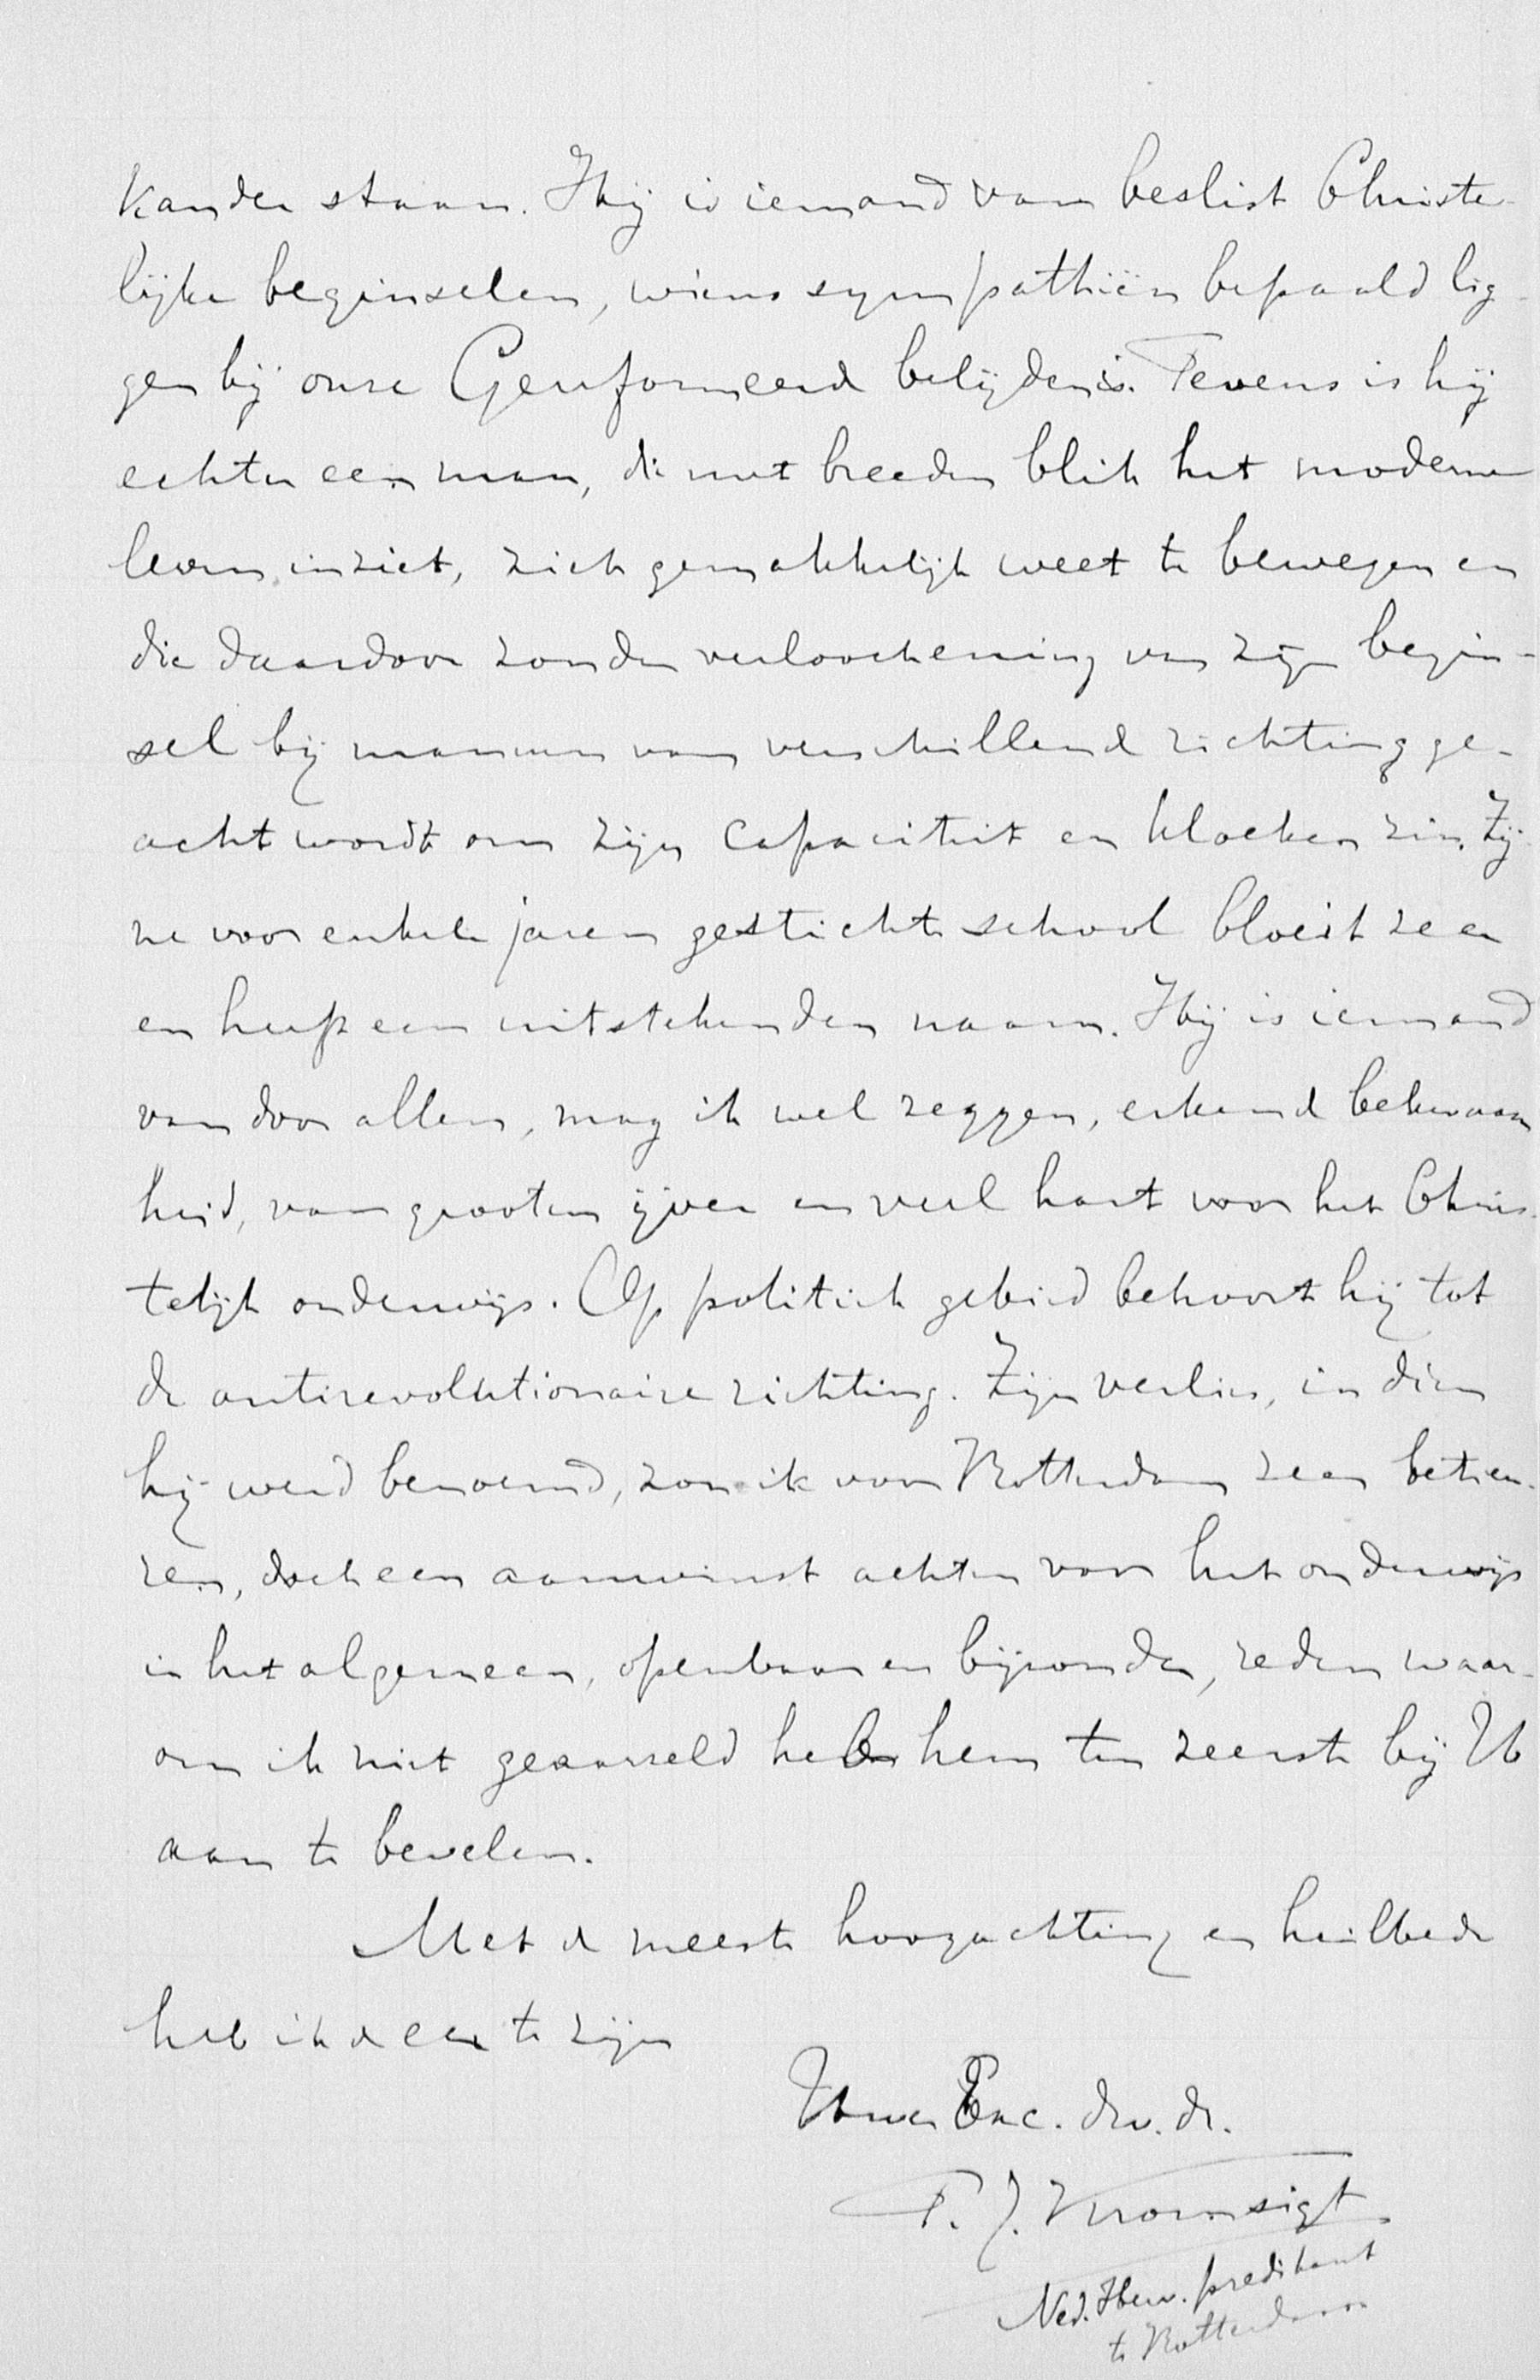 kander staan. Hij is iemand van beslist Christe-
lijke beginselen, wiens sympathiën bepaald lig-
gen bij onze Gereformeerde belijdenis. Tevens is hij
echter een man, die met breeden blik het moderne
leven inziet, zich gemakkelijk weet te bewegen en
die daardoor zonder verloochening van zijn begin-
sel bij mannen van verschillende richting ge-
acht wordt om zijn capaciteit en kloeken zin. Zij-
ne voor enkele jaren gestichte school bloeit zeer
en heeft een uitstekenden naam. Hij is iemand
van door allen, mag ik wel zeggen, erkende bekwaam
heid, van grooten ijver en veel hart voor het Chris-
telijk onderwijs. Op politiek gebied behoort hij tot
de antirevolutionaire richting. Zijn verlies, indien
hij werd benoemd, zou ik voor Rotterdam zeer betreu-
ren, doch een aanwinst achten voor het onderwijs
in het algemeen, openbaar en bijzonder, reden waar-
om ik niet geaarzeld heb hem ten zeerste bij U
aan te bevelen.
Met de meeste hoogachting en heilbede
heb ik de eer te zijn
Uwer Exc. dw. dr.
P. J. Kromsigt
Ned. Herv. predikant
te Rotterdam